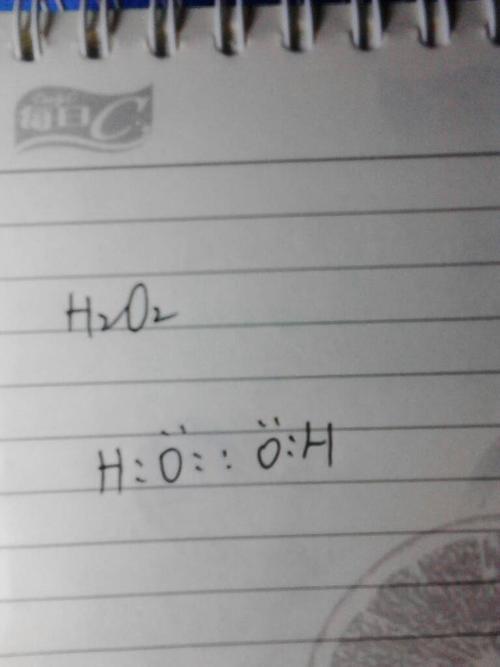 每日C
H₂O₂
H:Ö: :Ö:H